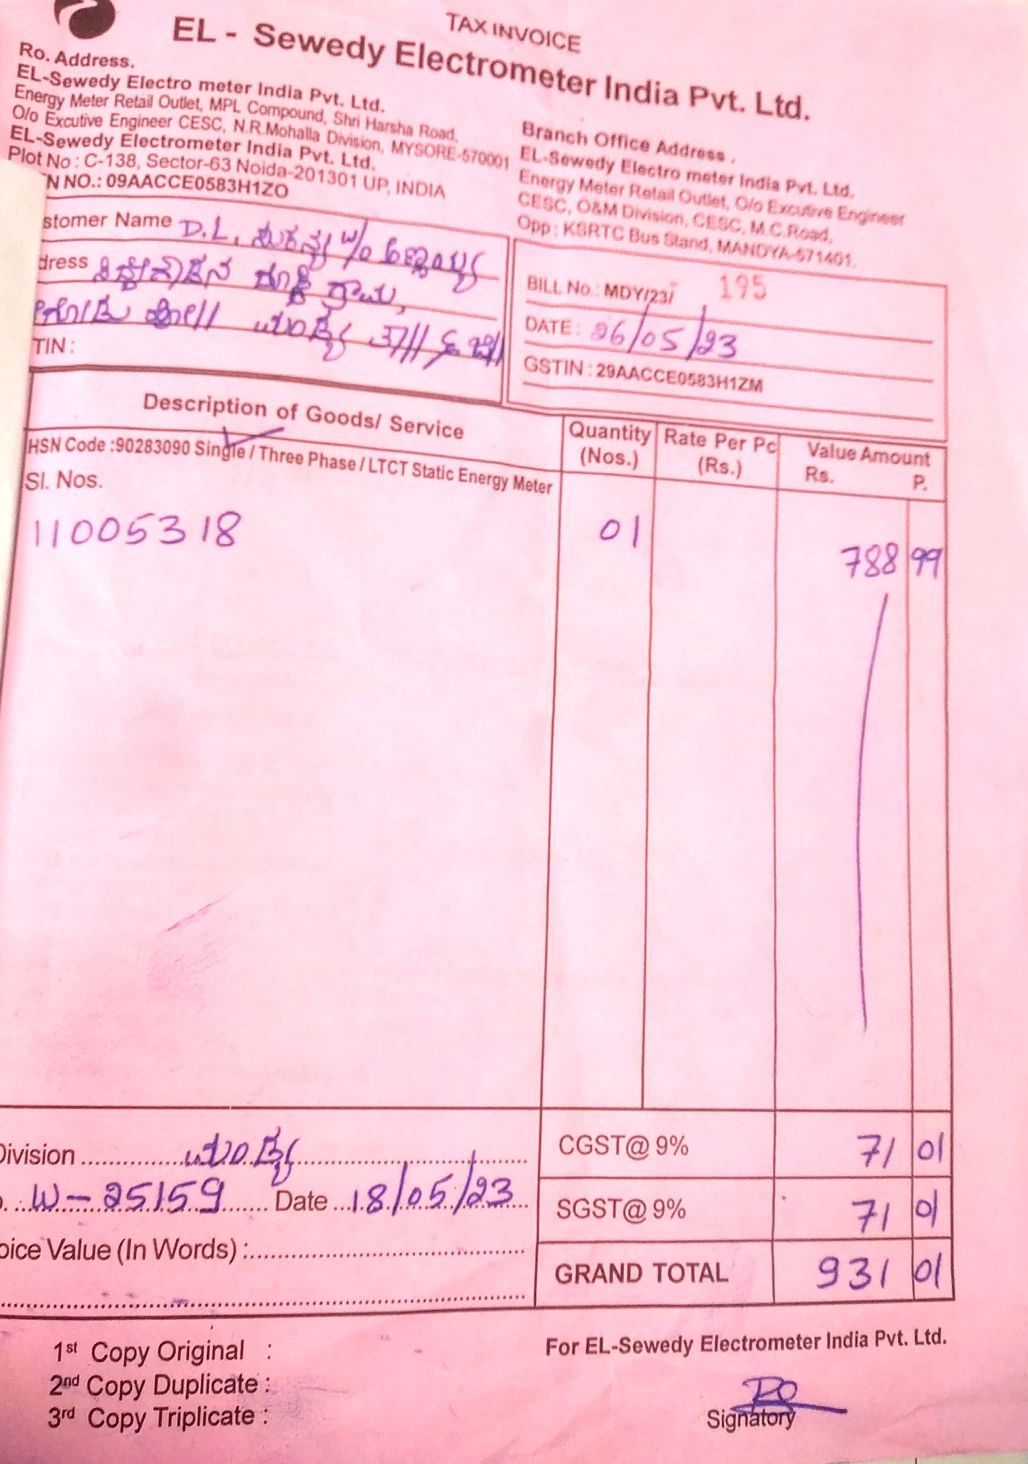 TAX INVOICE
EL - Sewedy Electrometer India Pvt. Ltd.
Ro. Address.
EL-Sewedy Electro meter India Pvt. Ltd.
Energy Meter Retail Outlet, MPL Compound, Shri Harsha Road,
O/o Excutive Engineer CESC, N.R.Mohalla Division, MYSORE-570001
EL-Sewedy Electrometer India Pvt. Ltd.
Plot No : C-138, Sector-63 Noida-201301 UP, INDIA
N NO.: 09AACCE0583H1ZO
Branch Office Address .
EL-Sewedy Electro meter India Pvt. Ltd.
Energy Meter Retail Outlet, O/o Excutive Engineer
CESC, O&M Division, CESC, M.C.Road,
Opp : KSRTC Bus Stand, MANDYA-571401.
stomer Name D.L, W/o
dress
TIN :
BILL No.: MDY/23/ 195
DATE : 26/05/23
GSTIN : 29AACCE0583H1ZM
Description of Goods/ Service
Quantity (Nos.)
Rate Per Pc (Rs.)
Value Amount Rs. P.
HSN Code :90283090 Single / Three Phase / LTCT Static Energy Meter
Sl. Nos.
11005318 01 788 99
Division
CGST@ 9% 71 01
. W-25159 Date 18/05/23
SGST@ 9% 71 01
oice Value (In Words) :
GRAND TOTAL 931 01
1st Copy Original :
2nd Copy Duplicate :
3rd Copy Triplicate :
For EL-Sewedy Electrometer India Pvt. Ltd.
Signatory